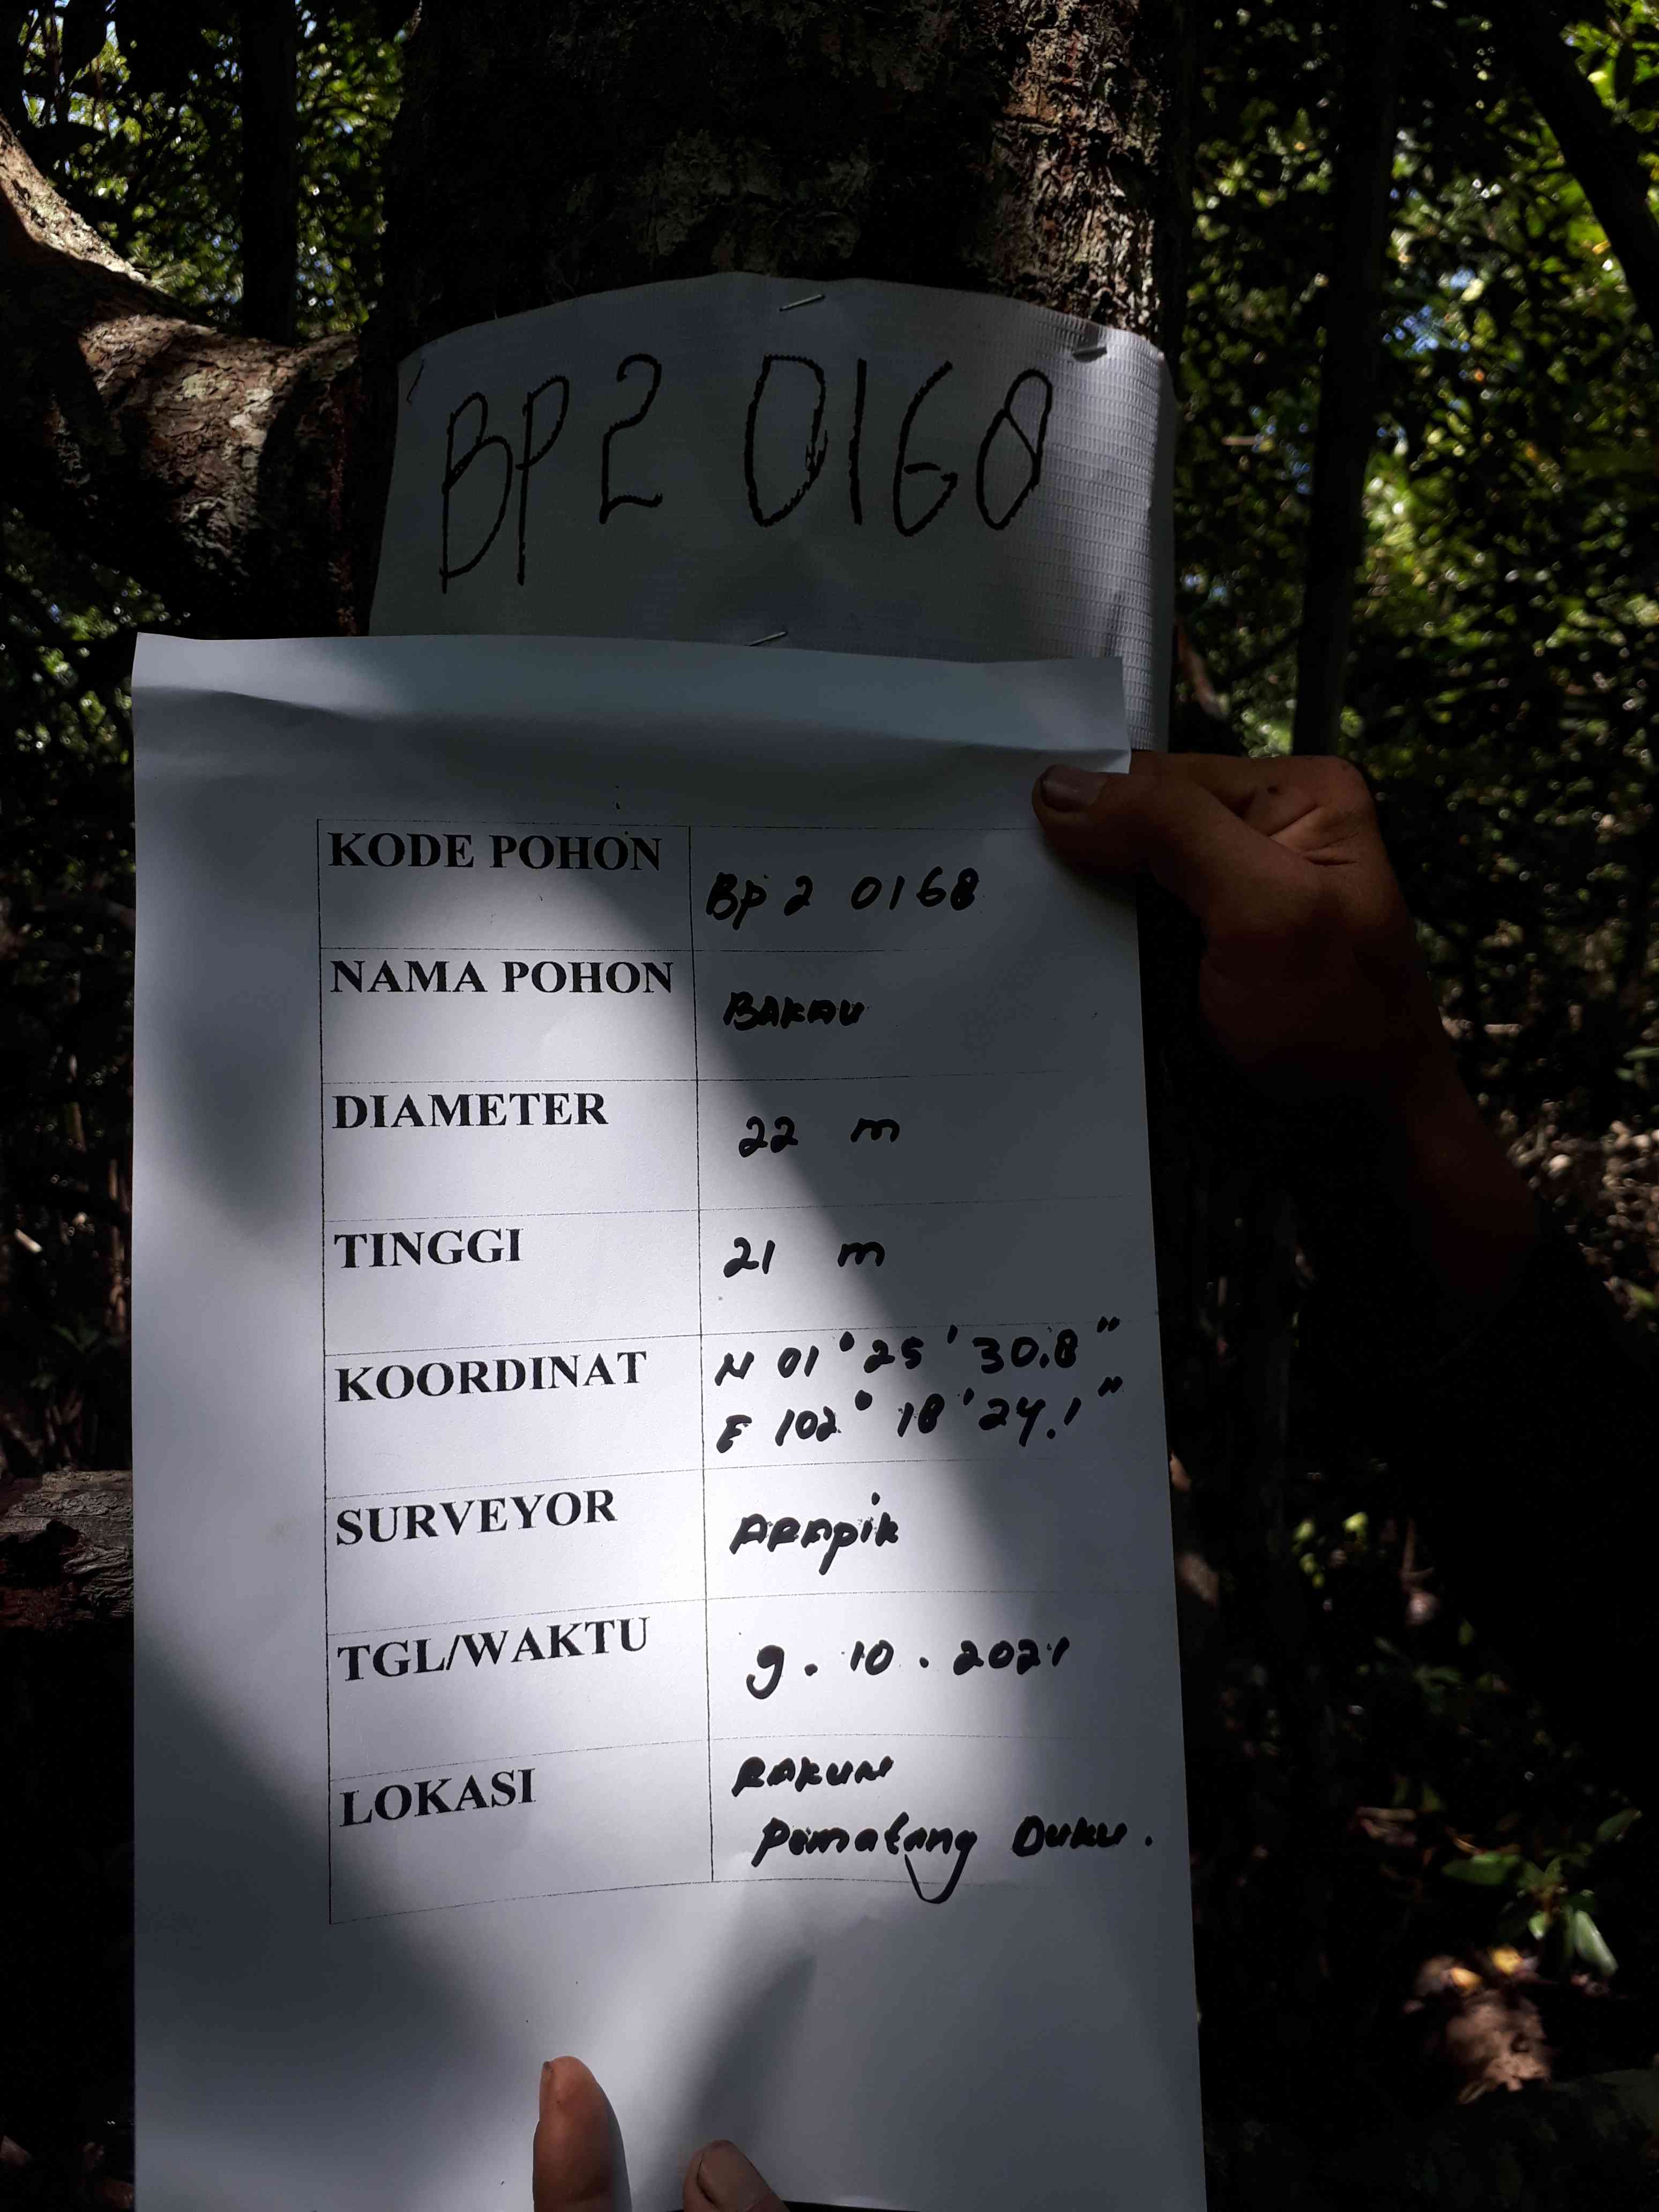 BP2 0168
KODE POHON
Bp 2 0168
NAMA POHON
BAKAU
DIAMETER
22 m
TINGGI
21 m
KOORDINAT
N 01° 25' 30.8"
E 102° 18' 24.1"
SURVEYOR
ARApik
TGL/WAKTU
9. 10. 2021
LOKASI
RAKUN
Pematang Duku.